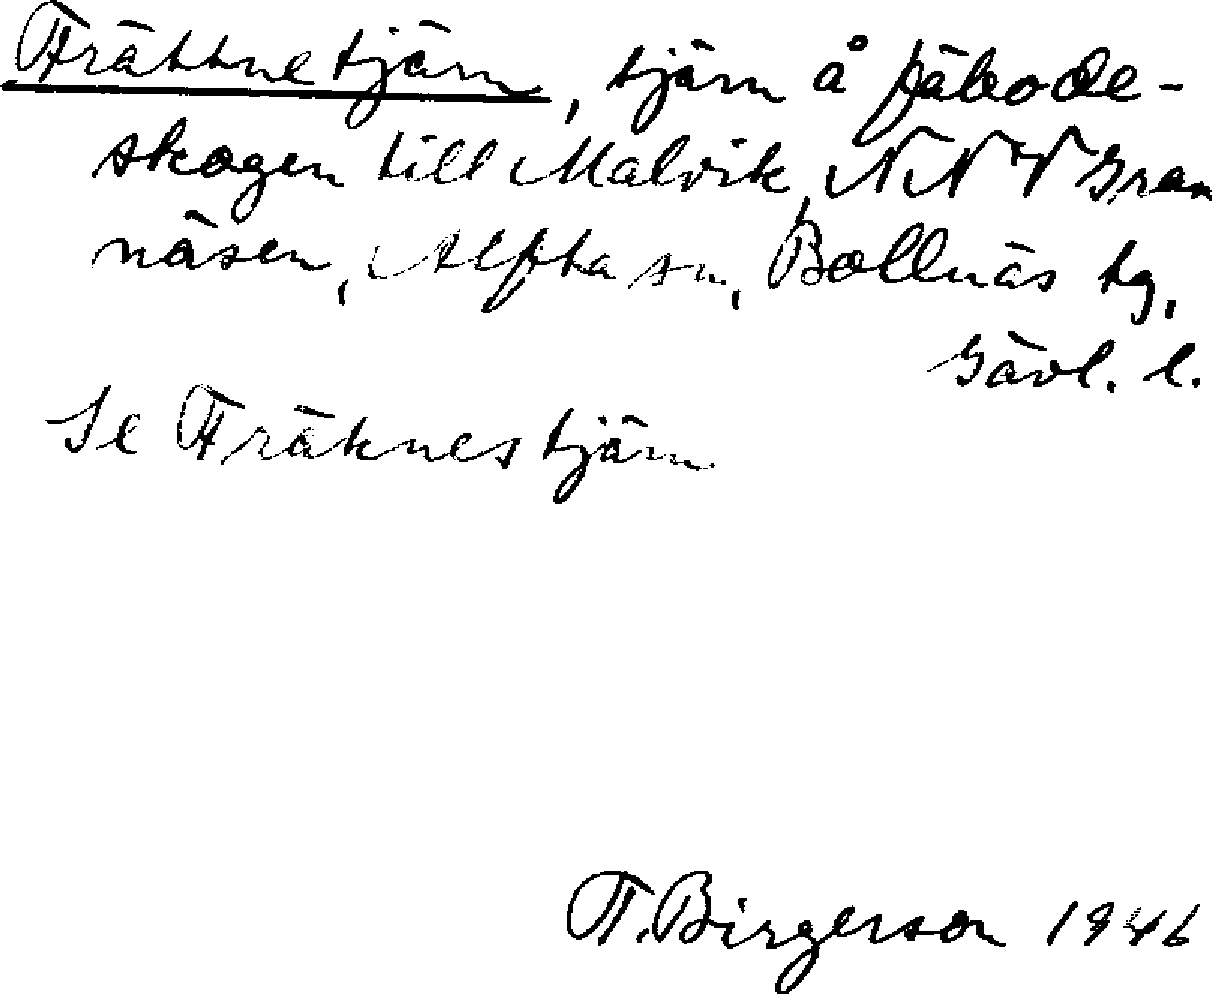 Fräktnetjärn, tjärn å fäbode-
skogen till Malvik, NNV Gran
näsen, Alfta sn, Bollnäs tg,
Gävl. l.
Se Fräknestjärn
F. Birgerson 1946